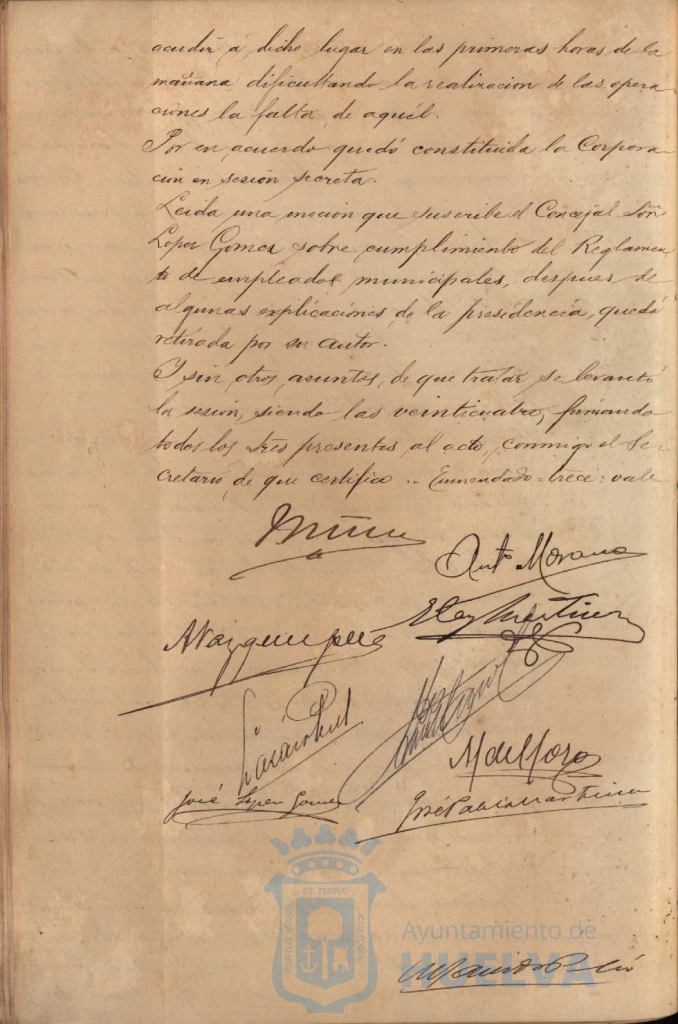 acudir á dicho lugar en las primeras horas de la
mañana dificultando la realizacion de las opera
ciones la falta de aquél.
Por en acuerdo quedó constituida la Corpora-
cion en sesión secreta.
Leida una moción que suscribe el Concejal Sôr
Lopez Gomez sobre cumplimiento del Reglamen
to de empleados municipales, despues de
algunas explicaciones de la presidencia, quedó
retirada por su autor.
Y sin otros asuntos de que tratar se levantó
la sesion, siendo las veinticuatro, firmando
todos los Sres presentes al acto, conmigo el Se-
cretario, de que certifico .. Enmendado = trece: vale
Antº Morano
Eloy Martinez
A Vazquez
José Lopez Gomez
M del Hoyo
José Pablo Martinez
PORTUS MARIS ET TERRAE CUSTODIA
Ayuntamiento de
HUELVA